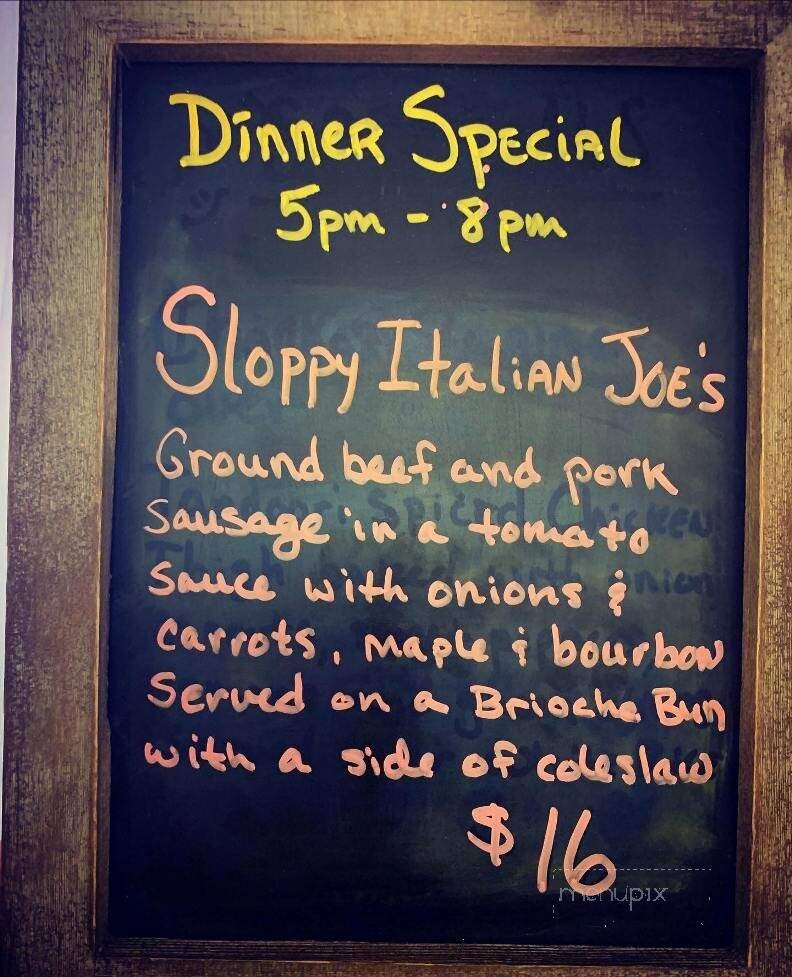 Dinner Special
5pm - 8pm
Sloppy Italian Joe's
Ground beef and pork
sausage in a tomato
sauce with onions &
carrots, maple & bourbon
Served on a Brioche Bun
with a side of coleslaw
$16
menupix